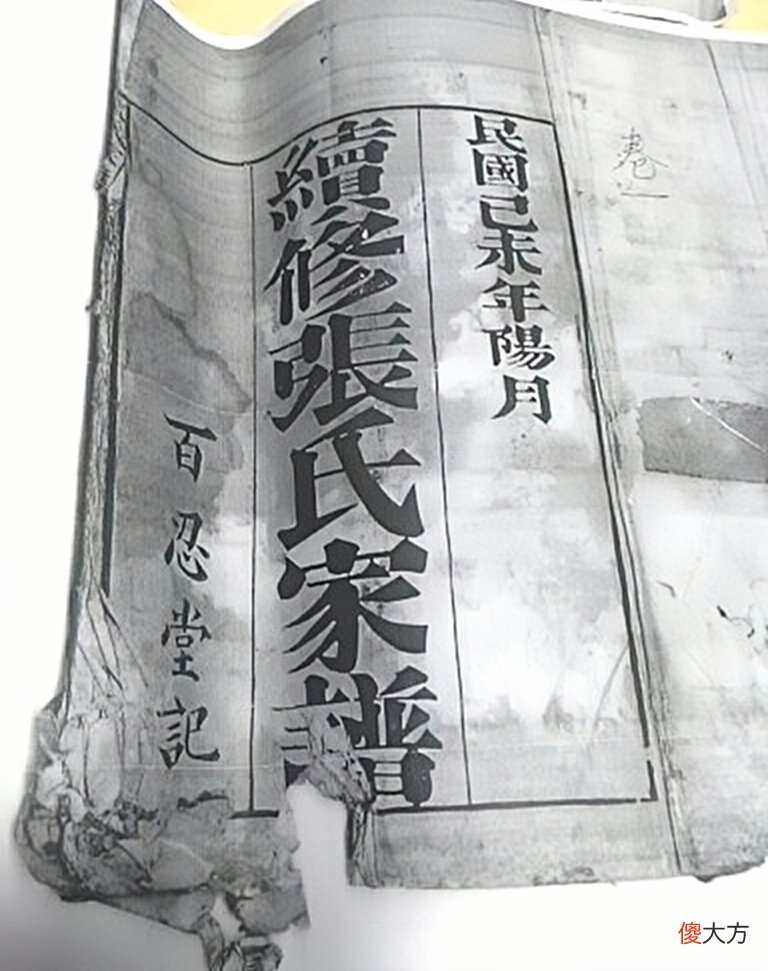 卷一
民國己未年陽月
續修張氏家譜
百忍堂記
傻大方